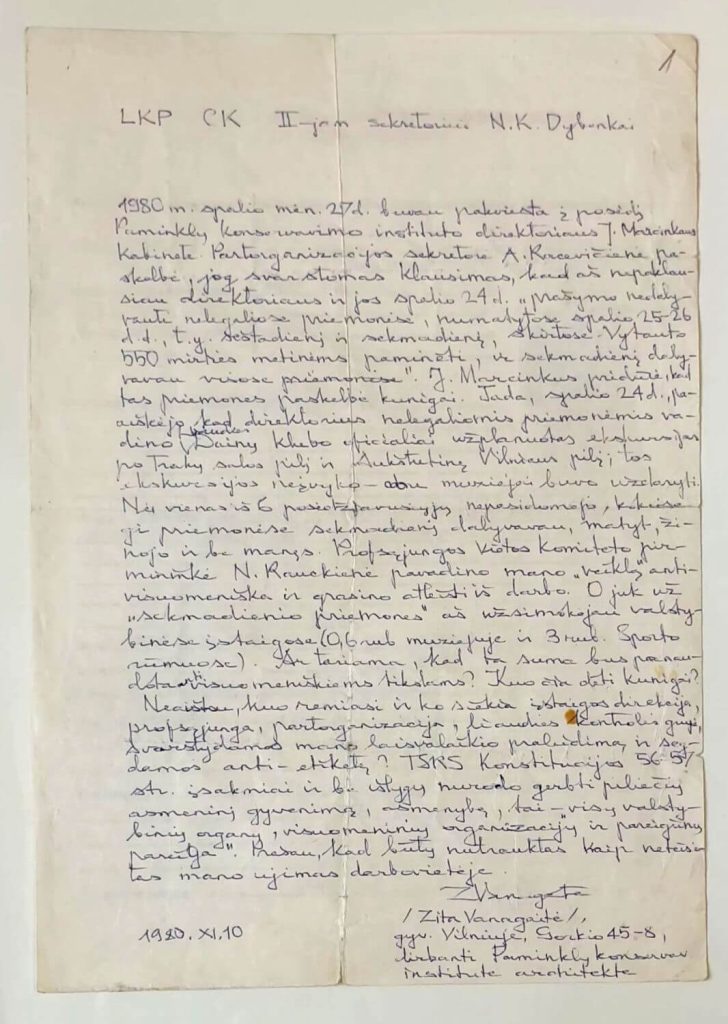 1
LKP CK II-jam sekretoriui N.K. Dybenkai
1980 m. spalio mėn. 27 d. buvau pakviesta į posėdį
Paminklų konservavimo instituto direktoriaus J. Marcinkaus
kabinete. Partorganizacijos sekretorė A. Racevičienė pa-
skelbė, jog svarstomas klausimas, kad aš nepaklau-
siau direktoriaus ir jos spalio 24 d. „prašymo nedaly-
vauti nelegaliose priemonėse, numatytose spalio 25-26
d.d., t.y. šeštadienį ir sekmadienį, skirtose Vytauto
550 mirties metinėms paminėti, ir sekmadienį daly-
vavau visose priemonėse". J. Marcinkus pridūrė, kad
tas priemones paskelbė kunigai. Tada, spalio 24 d., pa-
aiškėjo, kad direktorius nelegaliomis priemonėmis va-
dino Liaudies Dainų klubo oficialiai užplanuotas ekskursijas
po Trakų salos pilį ir Aukštutinę Vilniaus pilį; tos
ekskursijos neįvyko – abu muziejai buvo uždaryti.
Nė vienas iš 6 posėdžiavusiųjų nepasidomėjo, kokiose
gi priemonėse sekmadienį dalyvavau, matyt, ži-
nojo ir be manęs. Profsąjungos vietos komiteto pir-
mininkė N. Rauckienė pavadino mano „veiklą" anti-
visuomeniška ir grasino atleisti iš darbo. O juk už
„sekmadienio priemones" aš užsimokėjau valsty-
binėse įstaigose (0,6 rub muziejuje ir 3 rub. Sporto
rūmuose). Ar tariama, kad ta suma bus panau-
dota antivisuomeniškiems tikslams? Kuo čia dėti kunigai?
Neaišku, kuo remiasi ir ko siekia įstaigos direkcija,
profsąjunga, partorganizacija, liaudies kontrolės grupė,
svarstydamos mano laisvalaikio praleidimą ir se-
damos anti-etiketę? TSRS Konstitucijos 56 57
str. įsakmiai ir be išlygų nurodo gerbti piliečių
asmeninį gyvenimą, asmenybę, tai – „visų valsty-
binių organų, visuomeninių organizacijų ir pareigūnų
pareiga". Prašau, kad būtų nutrauktas kaip neteisė-
tas mano ujimas darbovietėje.
/Zita Vanagaitė/,
1980.XI.10
gyv. Vilniuje, Gorkio 45-8,
dirbanti Paminklų konservav
institute architekte